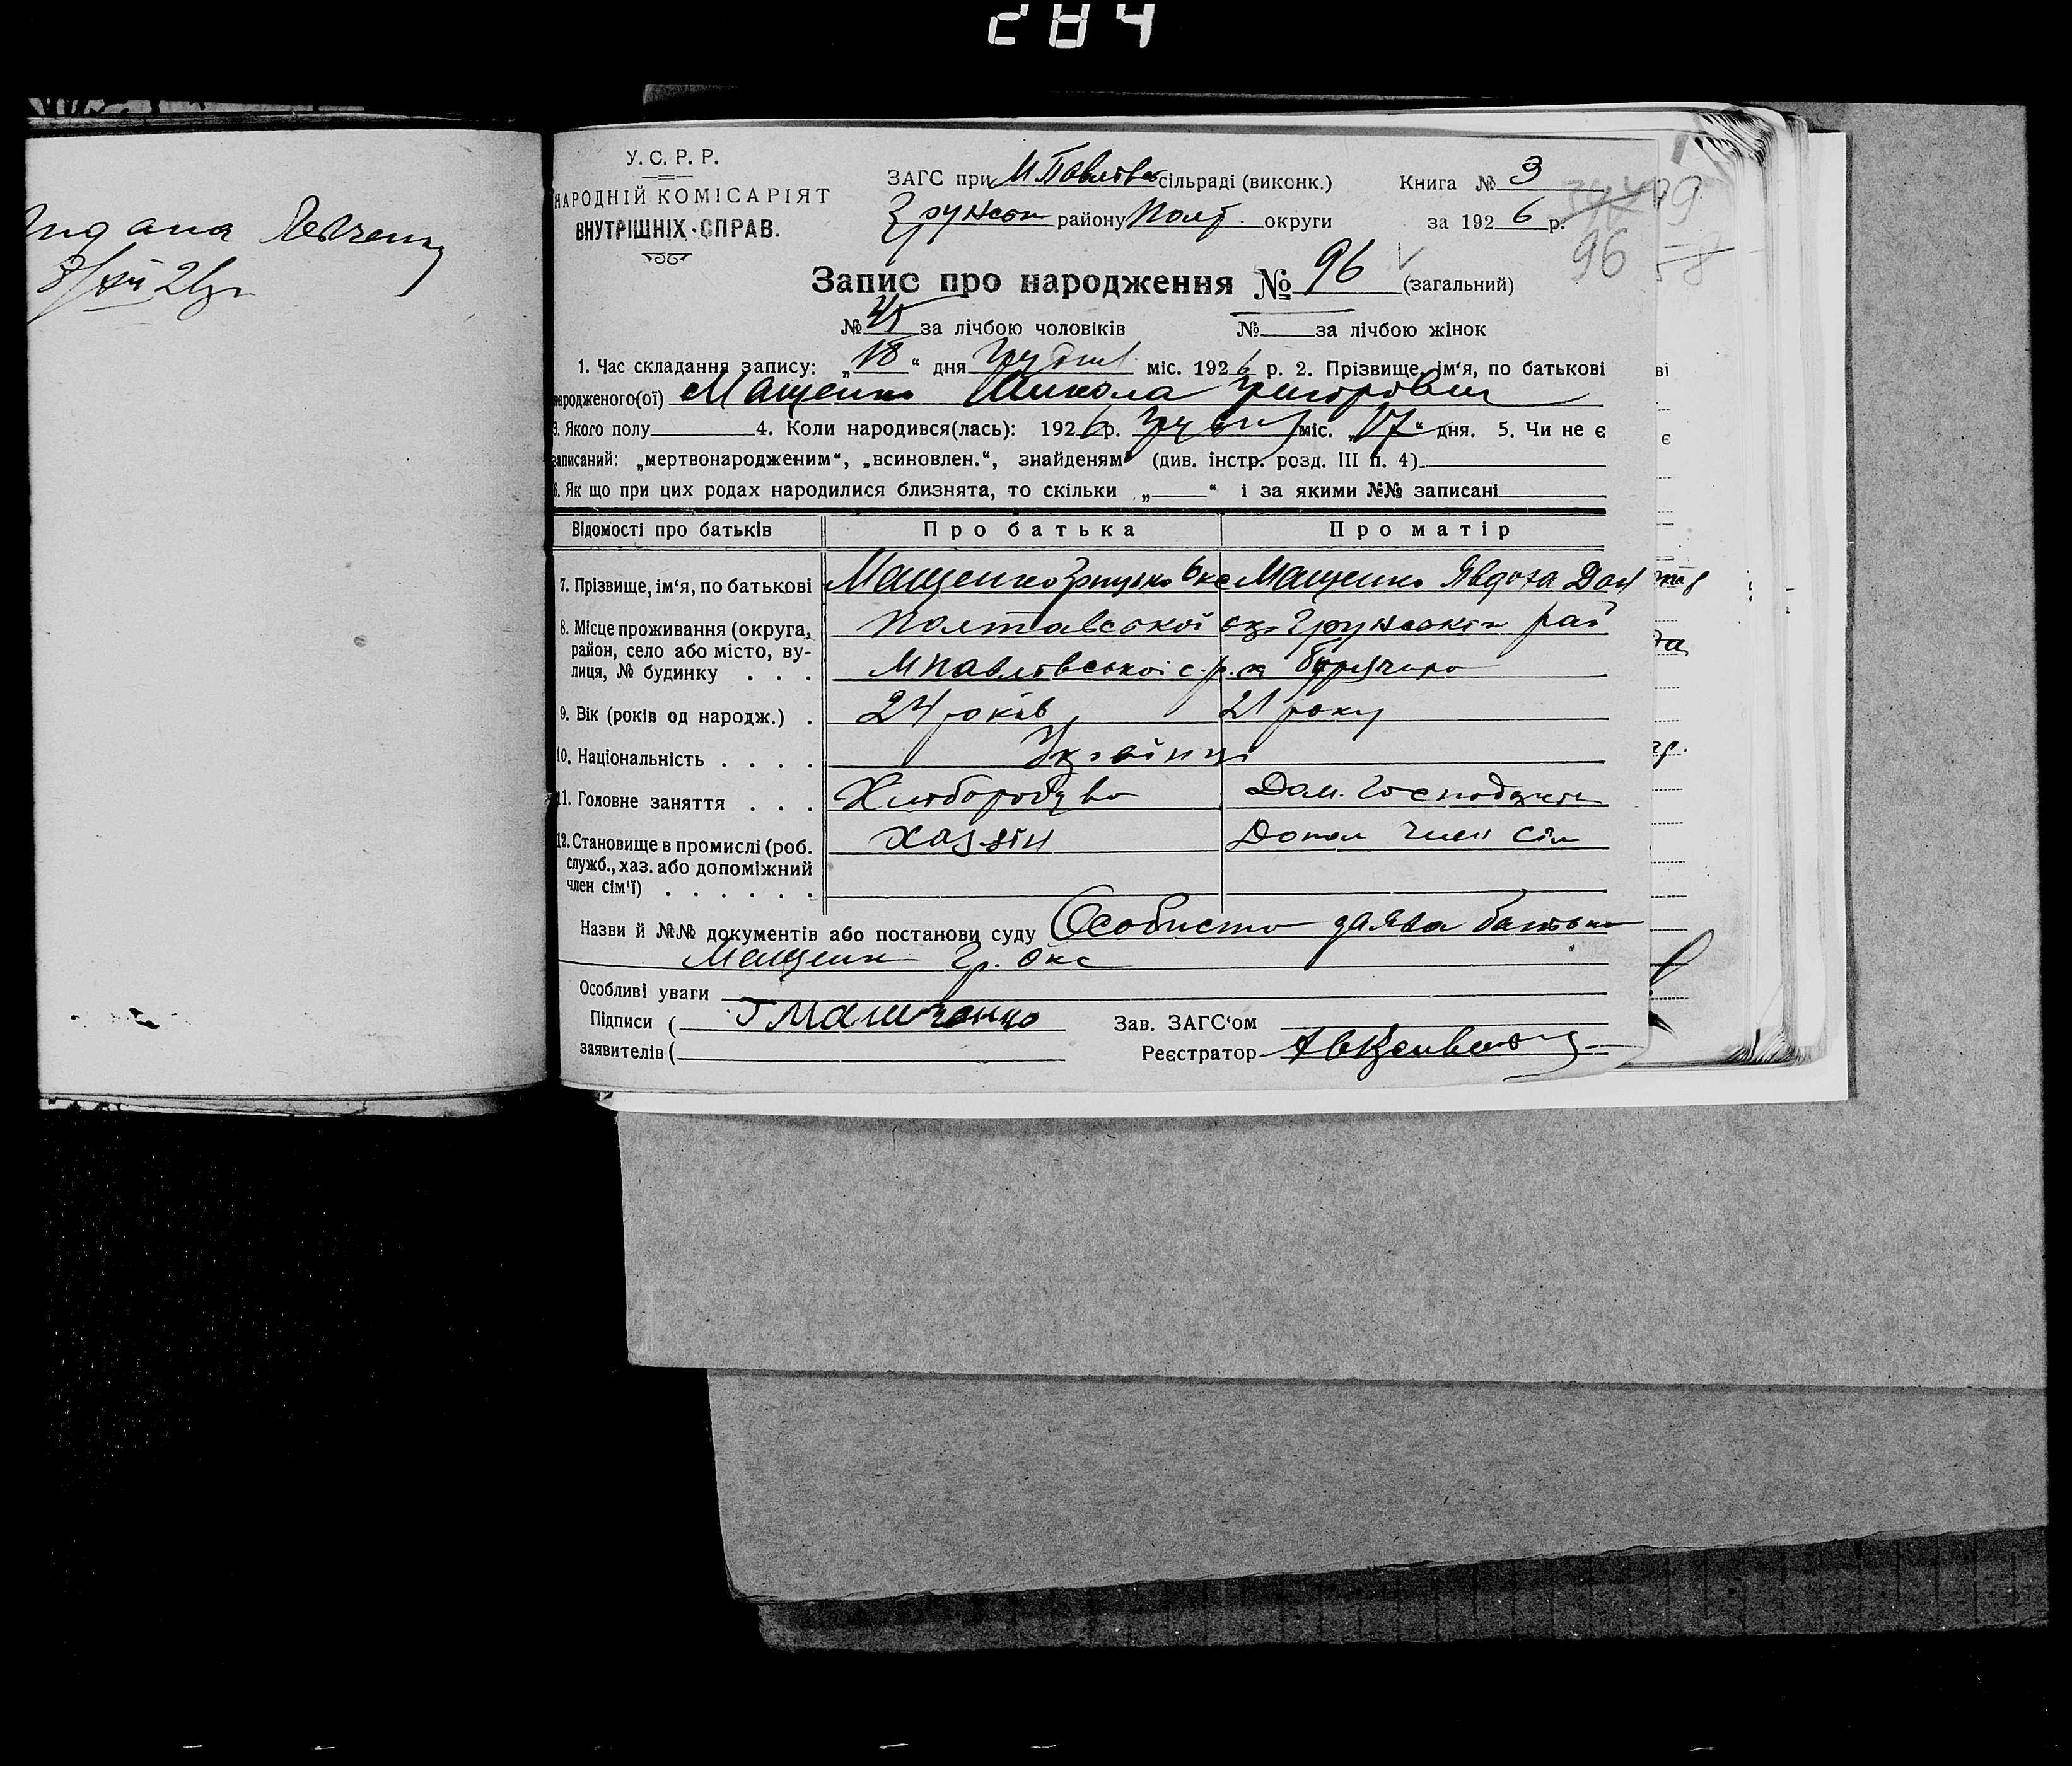 284
У. С. Р. Р.
НАРОДНІЙ КОМІСАРІЯТ
ВНУТРІШНІХ СПРАВ.
ЗАГС при М Павлівс сільраді (виконк.) Книга № 3
Грунськ району Полт. округи за 1926 р.
96
Запис про народження № 96 (загальний)
№ 45 за лічбою чоловіків № за лічбою жінок
1. Час складання запису: „18“ дня Грудня міс. 1926 р. 2. Прізвище, ім‘я, по батькові
народженого(ої) Мащенко Микола Григорович
3. Якого полу 4. Коли народився(лась): 1926 р. Грудня міс. „17“ дня. 5. Чи не є
записаний: „мертвонародженим“, „всиновлен.“, знайденям“ (див. інстр. розд. III п. 4)
6. Як що при цих родах народилися близнята, то скільки „ “ і за якими №№ записані
Відомості про батьків Про батька Про матір
7. Прізвище, ім‘я, по батькові Мащенко Грицько Окс Мащенко Явдоха Дан
8. Місце проживання (округа, район, село або місто, вулиця, № будинку . . . Полтавської окр Грунського рай
М Павлівської с.р. х
9. Вік (років од народж.) . 24 років 21 року
10. Національність . . . . Українці
11. Головне заняття . . . Хліборобство Дом. Господарство
12. Становище в промислі (роб. служб., хаз. або допоміжний член сім‘ї) . . . . . . Хазяїн Допом член сім
Назви й №№ документів або постанови суду Особисто заява батька
Мащенко Гр. Окс
Особливі уваги
Підписи ( Г Мащенко Зав. ЗАГС‘ом
заявителів ( Реєстратор